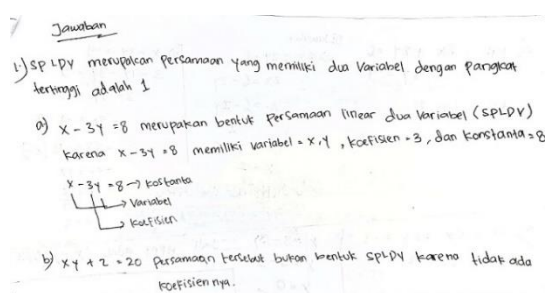 Jawaban
1.) SPLDV merupakan persamaan yang memiliki dua variabel dengan pangkat
tertinggi adalah 1
a) x - 3y = 8 merupakan bentuk persamaan linear dua variabel (SPLDV)
karena x - 3y = 8 memiliki variabel = x, y, koefisien = 3, dan konstanta = 8
x - 3y = 8 → kostanta
→ Variabel
→ koefisien
b) xy + 2 = 20 persamaan tersebut bukan bentuk SPLDV karena tidak ada
koefisien nya.